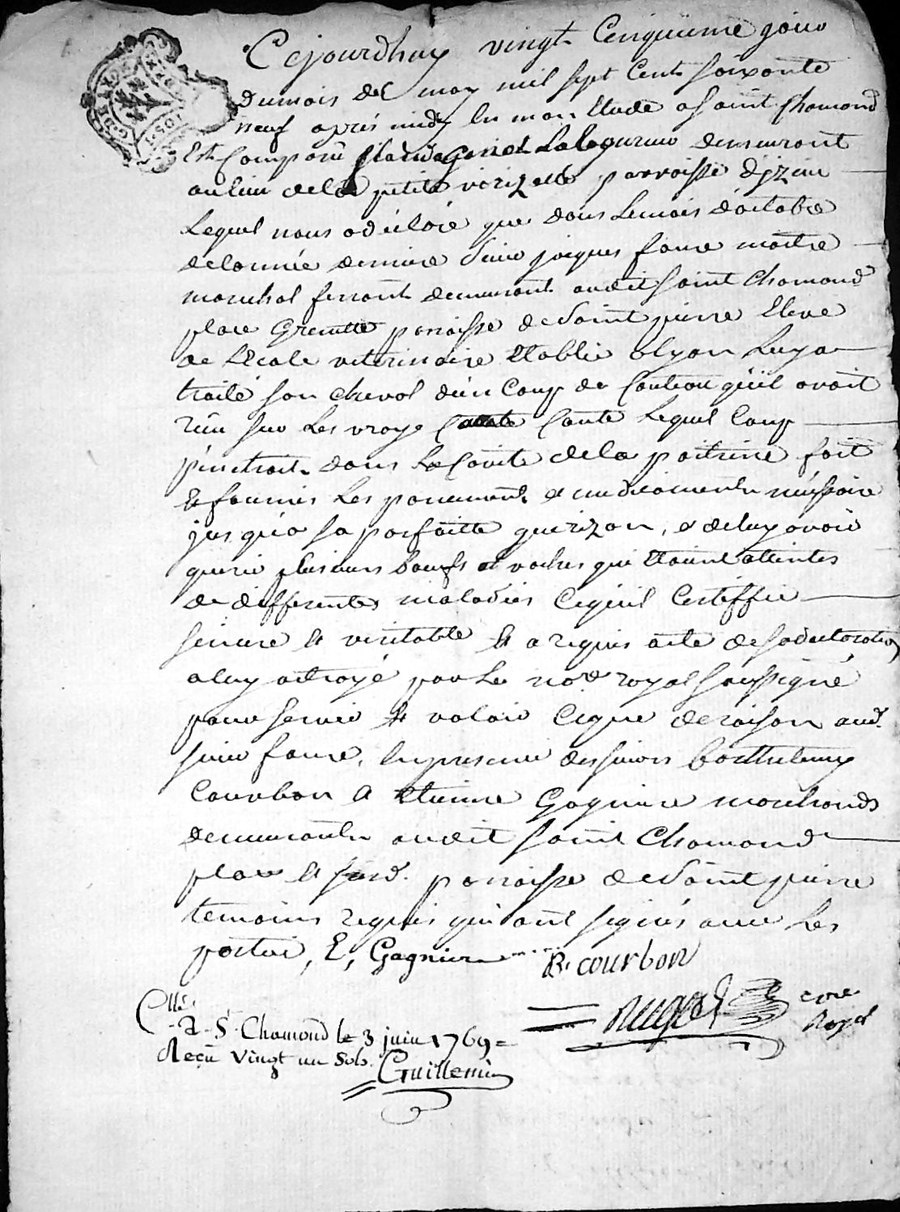 Cejourdhuy vingt Cinquieme jour
Dumois de may mil sept Cent soixante
neuf après midy En mon Etude a Saint Chamond
Est Comparu demeurant
au lieu de la petite varizelle parroisse d'jzieu
Lequel nous a déclaré que dans Le mois d'octobre
de lannée derniere Sieur jacques faure maitre
marechal ferrant demeurant audit Saint Chamond
place Grenette paroisse de Saint pierre Eleve
de L'Ecole veterinaire Etablie a lyon Luy a
traité son cheval d'un Coup de Couteau qu'il avoit
reçu sur Les vraye Coste Lequel Coup
penetrait dans La Cavité de la poitrine fait
et fournis Les pansements et medicaments necessaire
jusqu'a sa parfaitte guerizon, et de luy avoir
gueri plusieurs boeufs et vaches qui Etaient atteintes
de differentes maladies Ce qu'il Certiffie
sincere et veritable et a requis acte de sa declaration
a luy octroyé par Le nore. royal soussigné
pour servir et valoir Ce que de raison aud.
sieur faure, En presence des sieurs barthelemy
Courbon et Etienne Gagniere marchands
demeurants audit saint Chamond
place et susd. paroisse de Saint pierre
temoins requis qui ont signés avec Les
parties, E, Gagniere B. courbon
Collé.
A S. Chamond le 3 juin 1769
Reçu vingt un Sols. Guillemin
Royal